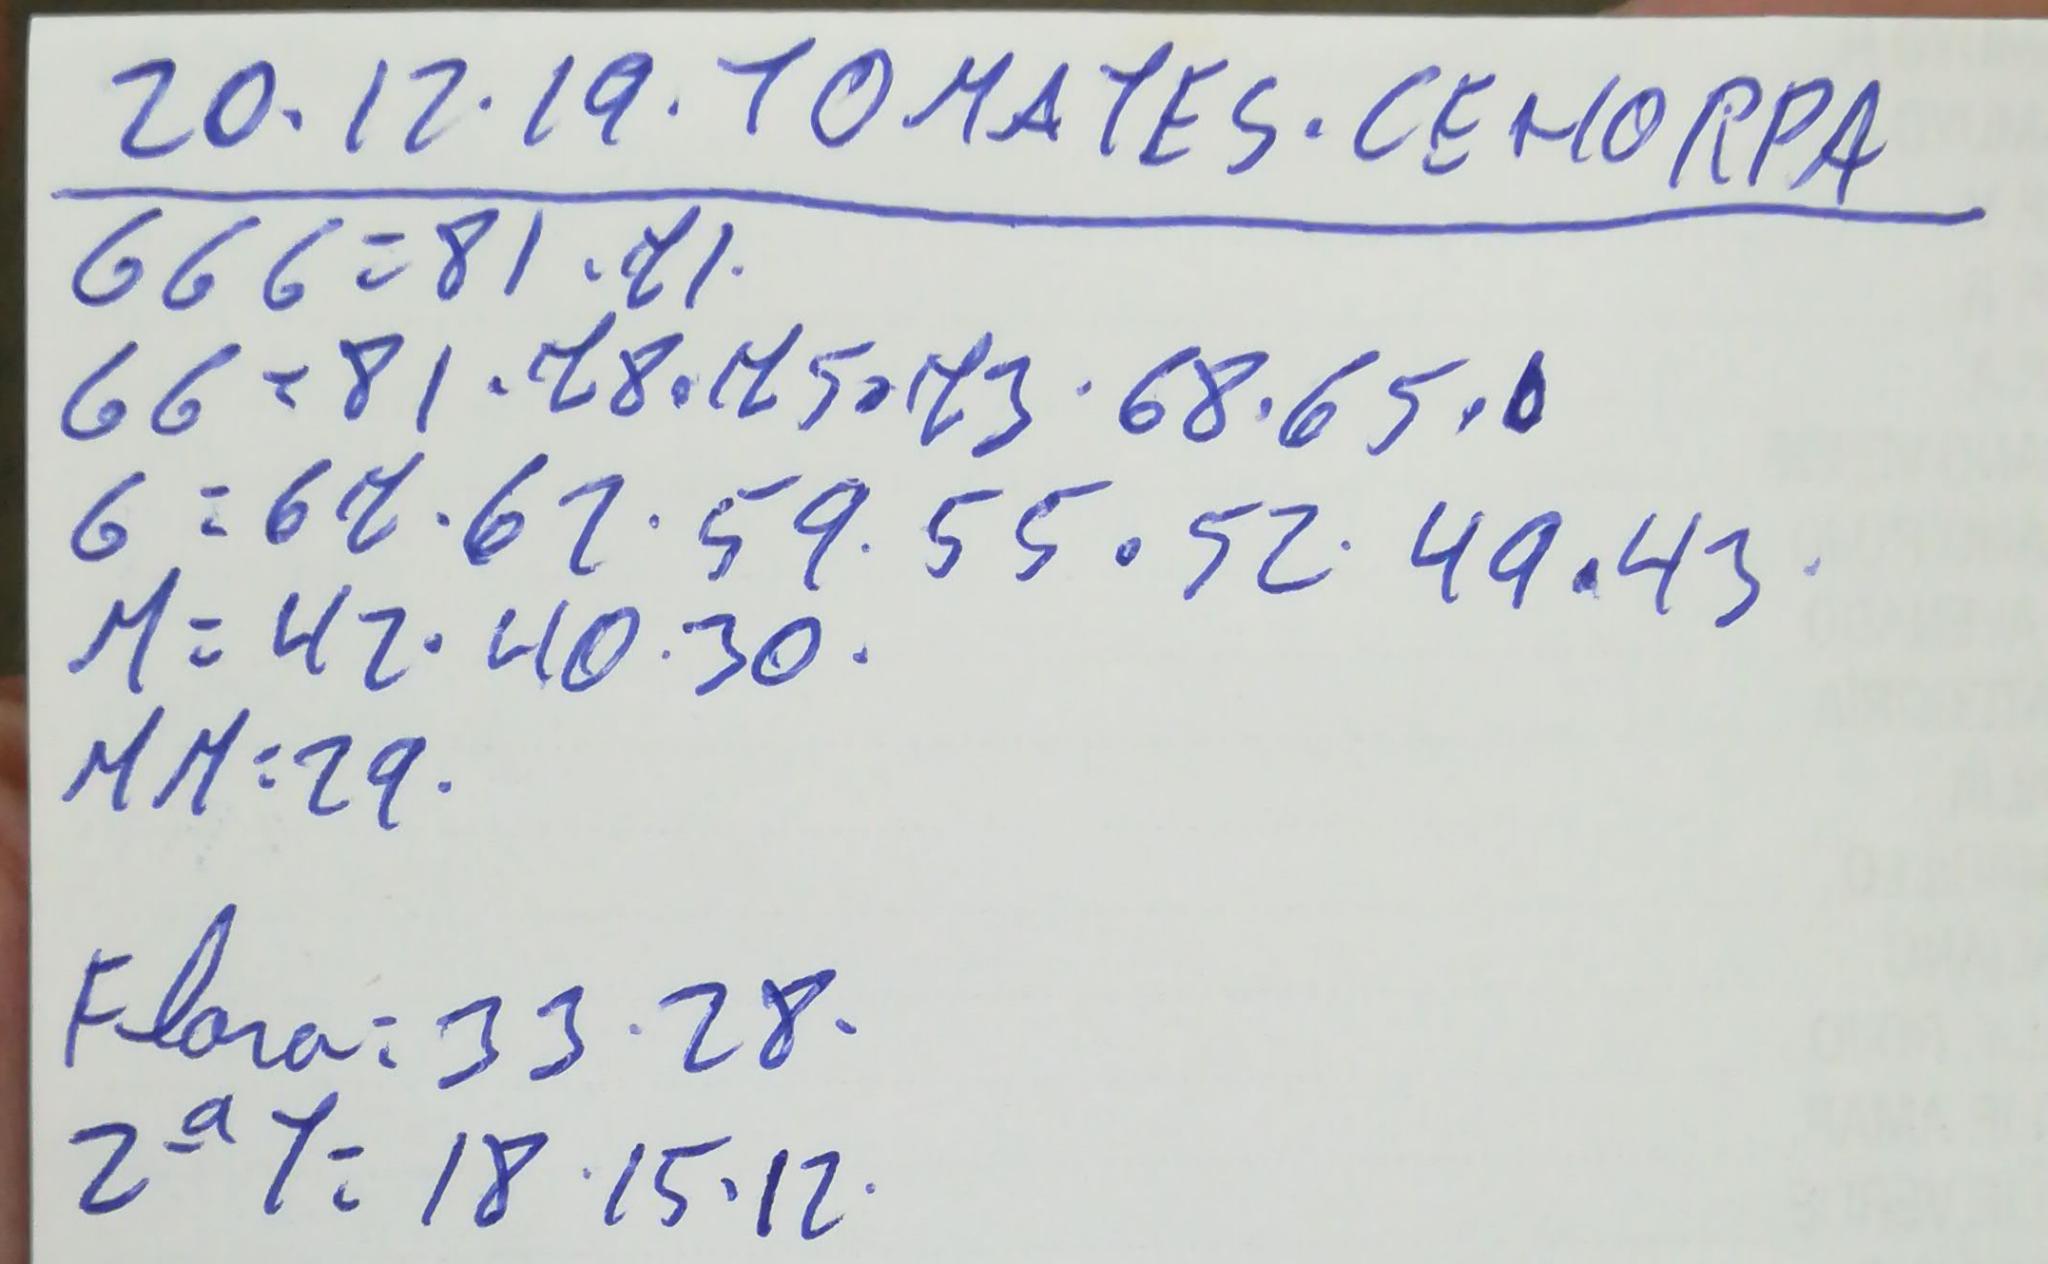 20.12.19.TOMATES.CEMORPA
666=81.71.
66=81.78.75.73.68.65.
6=67.62.59.55.52.49.43.
M=42.40.30.
MM=29.
Flora=33.28.
2ªT=18.15.12.